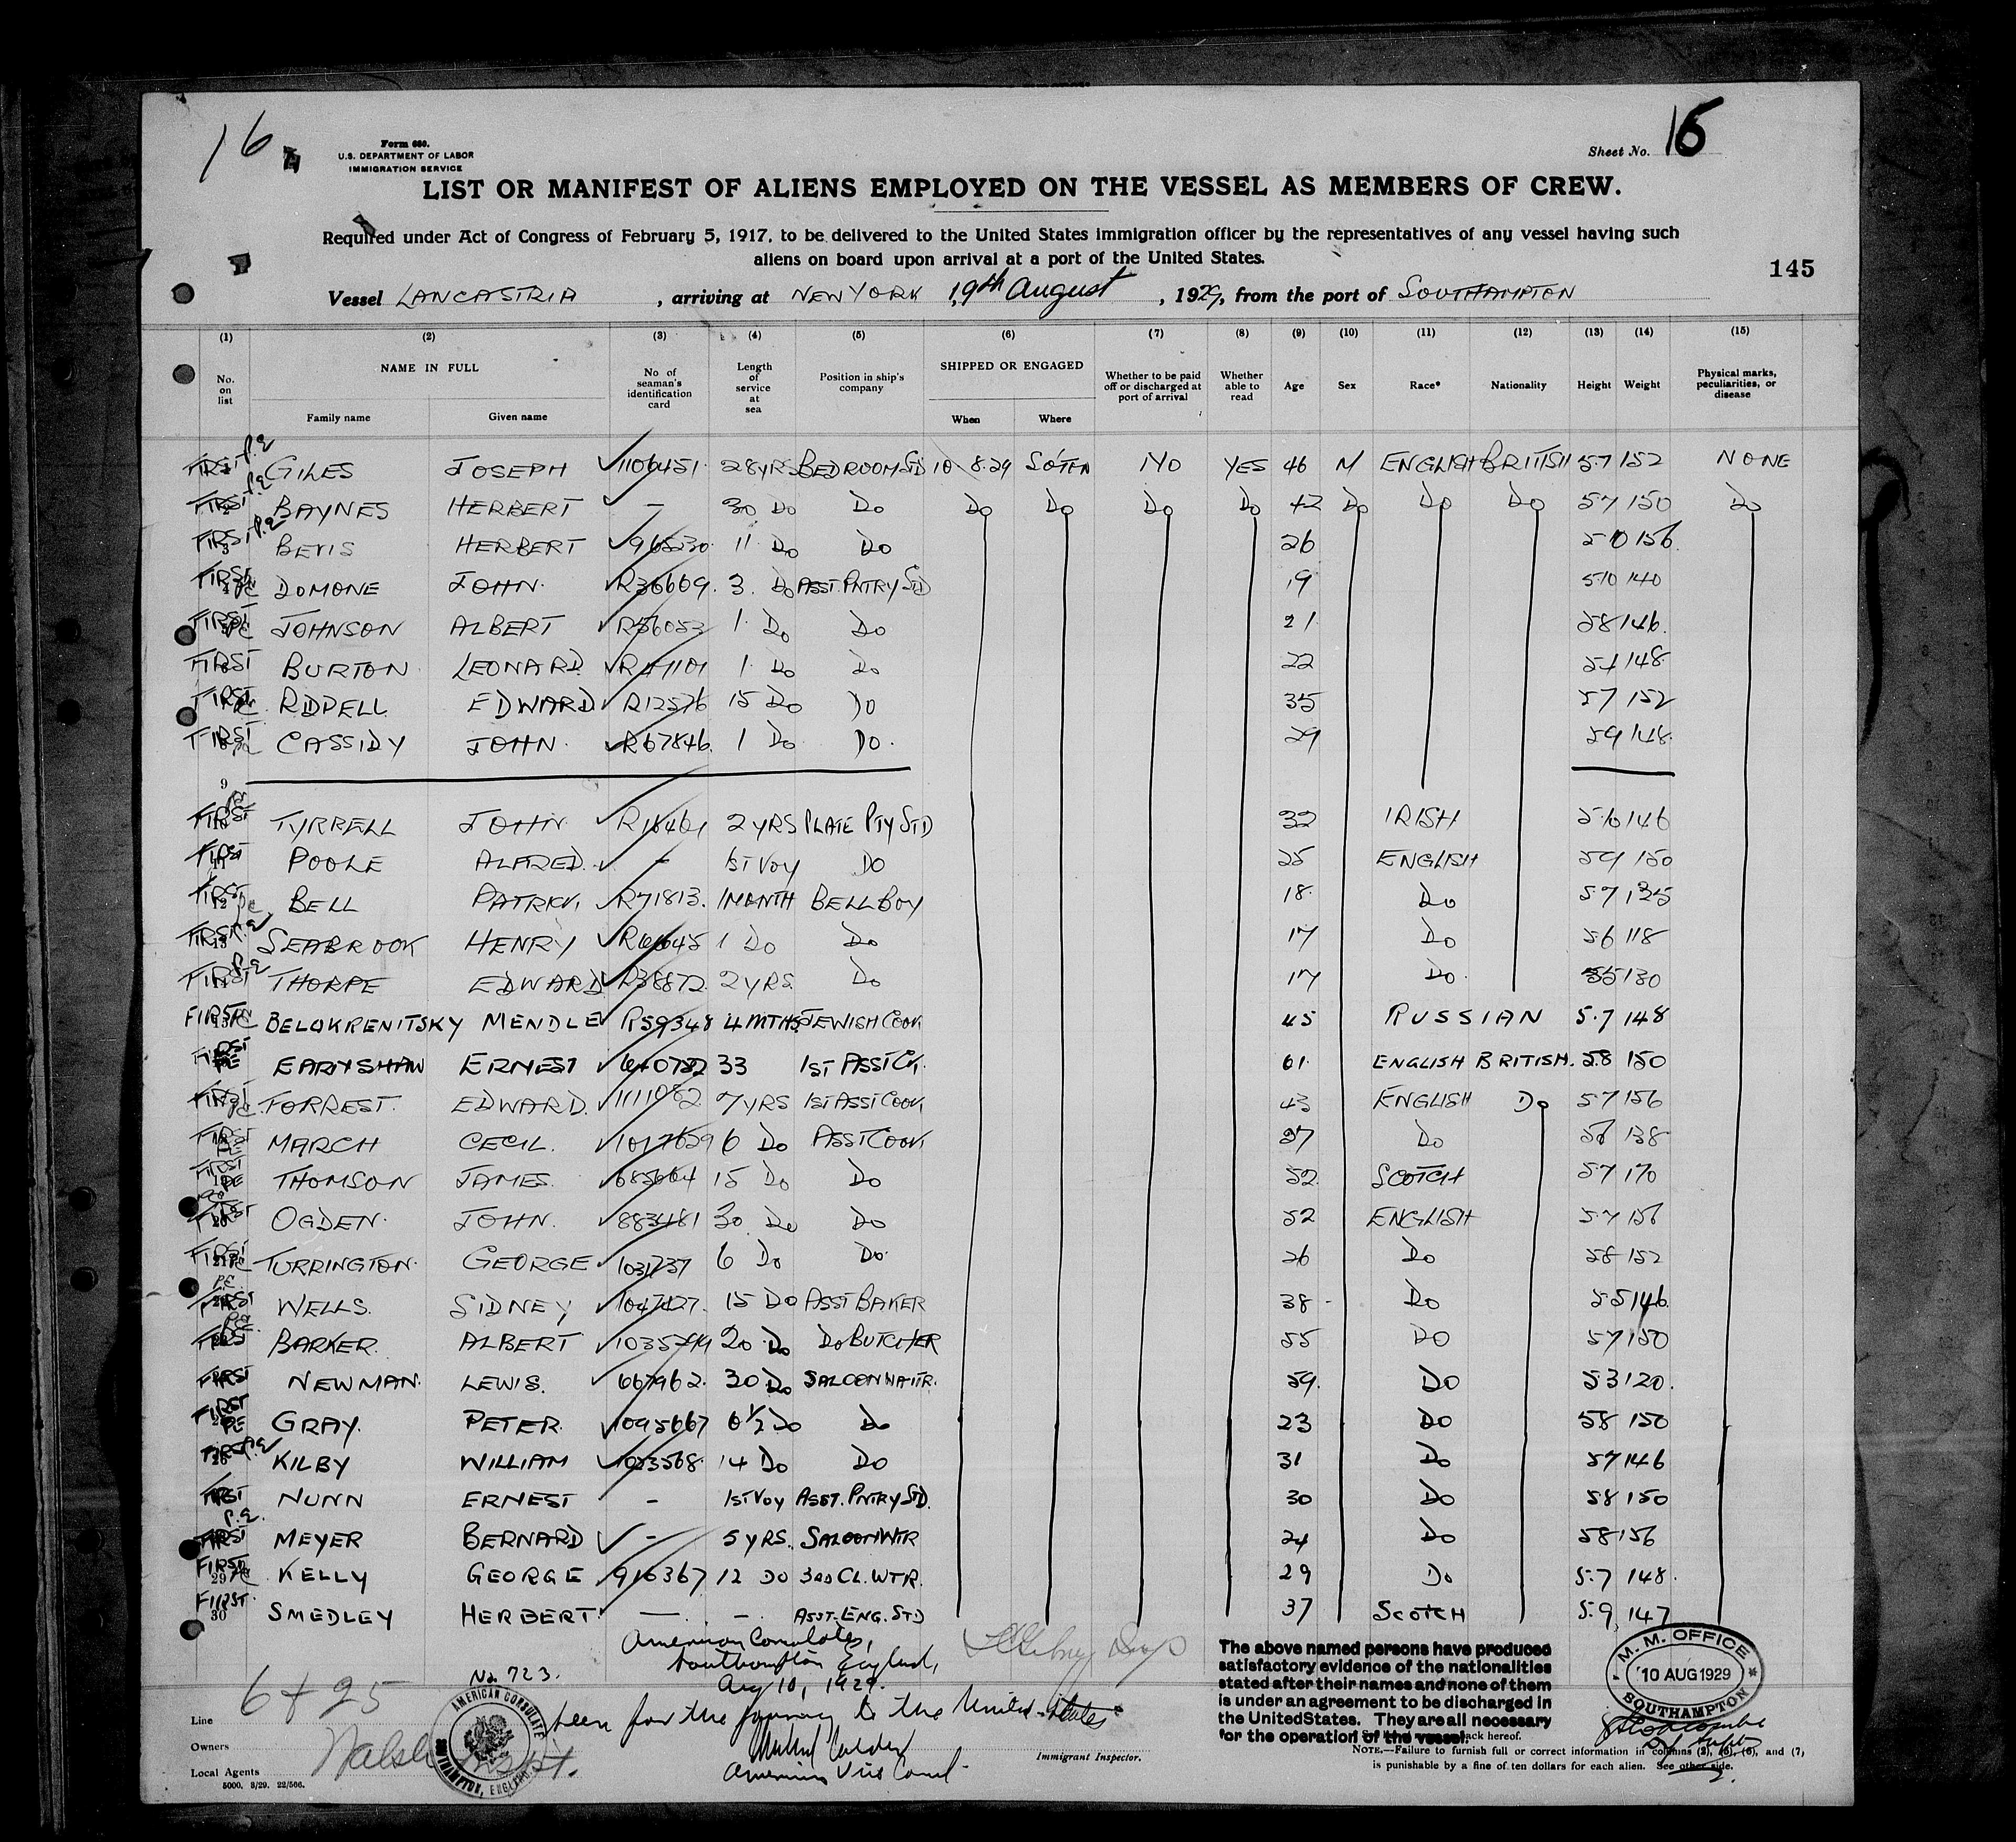 16
Form 680.
U.S. DEPARTMENT OF LABOR
IMMIGRATION SERVICE
Sheet No. 16
LIST OR MANIFEST OF ALIENS EMPLOYED ON THE VESSEL AS MEMBERS OF CREW.
Required under Act of Congress of February 5, 1917, to be delivered to the United States immigration officer by the representatives of any vessel having such
aliens on board upon arrival at a port of the United States.
145
Vessel LANCASTRIA, arriving at NEW YORK 19th August, 1929, from the port of SOUTHAMPTON
(1) (2) (3) (4) (5) (6) (7) (8) (9) (10) (11) (12) (13) (14) (15)
No. on list NAME IN FULL Family name Given name No of seaman's identification card Length of service at sea Position in ship's company SHIPPED OR ENGAGED When Where Whether to be paid off or discharged at port of arrival Whether able to read Age Sex Race* Nationality Height Weight Physical marks, peculiarities, or disease
FIRST P.E GILES JOSEPH 1106451 28 YRS BEDROOM STD 10 8.29 SOTON NO YES 46 M ENGLISH BRITISH 57 152 NONE
FIRST P.E BAYNES HERBERT - 30 Do Do Do Do Do Do 42 Do Do Do 57 150 Do
FIRST P.E 3 BEVIS HERBERT 965230 11 Do Do 26 510 156
FIRST DOMONE JOHN R36609 3 Do ASST. PNTRY STD 19 510 140
FIRST JOHNSON ALBERT R56053 1 Do Do 21 58 146
FIRST BURTON LEONARD 1 Do Do 22 148
FIRST EDWARD R12576 15 Do Do 35 57 152
FIRST CASSIDY JOHN R67846 1 Do Do. 29 59 148
9
FIRST TYRRELL JOHN R16461 2 YRS PLATE PTY STD 32 IRISH 146
FIRST POOLE ALFRED - 1ST VOY DO 25 ENGLISH 59 150
FIRST BELL R71813 1 MONTH BELL BOY 18 Do 57 135
FIRST P.E SEABROOK HENRY 1 Do Do 17 Do 56 118
FIRST P.E THORPE EDWARD R38872 2 YRS Do 17 Do 55 130
FIRST BELOKRENITSKY MENDLE R59348 4 MTHS JEWISH COOK 45 RUSSIAN 5.7 148
FIRST PE ERNEST 640782 33 1ST ASST CK. 61 ENGLISH BRITISH. 58 150
FIRST FORREST EDWARD 1111082 7 YRS 1ST ASST COOK 43 ENGLISH Do 57 156
FIRST MARCH CECIL 1017629 6 Do ASST COOK 37 Do 56 138
FIRST PE THOMSON JAMES 685664 15 Do Do 52 SCOTCH 57 170
FIRST OGDEN JOHN 883481 30 Do Do 52 ENGLISH 57 156
FIRST TURRINGTON GEORGE 1031737 6 Do Do 26 Do 58 152
P.E. FIRST WELLS SIDNEY 1047427 15 Do ASST BAKER 38 Do 55 146
P.E. FIRST BARKER ALBERT 20 Do Do BUTCHER 55 Do 57 150
FIRST NEWMAN LEWIS 667962 30 Do SALOON WAITR. 59 Do 53 120
FIRST PE GRAY PETER 1095667 6½ Do Do 23 Do 58 150
FIRST P.E KILBY WILLIAM 1023568 14 Do Do 31 Do 57 146
FIRST NUNN ERNEST - 1ST VOY ASST. PNTRY STD. 30 Do 58 150
P.E. FIRST MEYER BERNARD - 5 YRS. SALOON WTR 24 Do 58 156
FIRST 29 KELLY GEORGE 916367 12 Do 3RD CL. WTR. 29 Do 5.7 148
FIRST 30 SMEDLEY HERBERT - - ASST. ENG. STD 37 SCOTCH 5.9 147
American Consulate,
Southampton England,
Aug 10, 1929.
No. 723.
Seen for the journey to the United States
American Vice Consul
6 + 25
Walsh
AMERICAN CONSULATE SOUTHAMPTON, ENGLAND
The above named persons have produced
satisfactory evidence of the nationalities
stated after their names and none of them
is under an agreement to be discharged in
the United States. They are all necessary
for the operation of the vessel.
M. M. OFFICE
10 AUG 1929
SOUTHAMPTON
Line
Owners
Local Agents
5000. 3/29. 22/566.
Immigrant Inspector.
back hereof.
NOTE.—Failure to furnish full or correct information in columns (2), (5), (6), and (7),
is punishable by a fine of ten dollars for each alien. See other side.